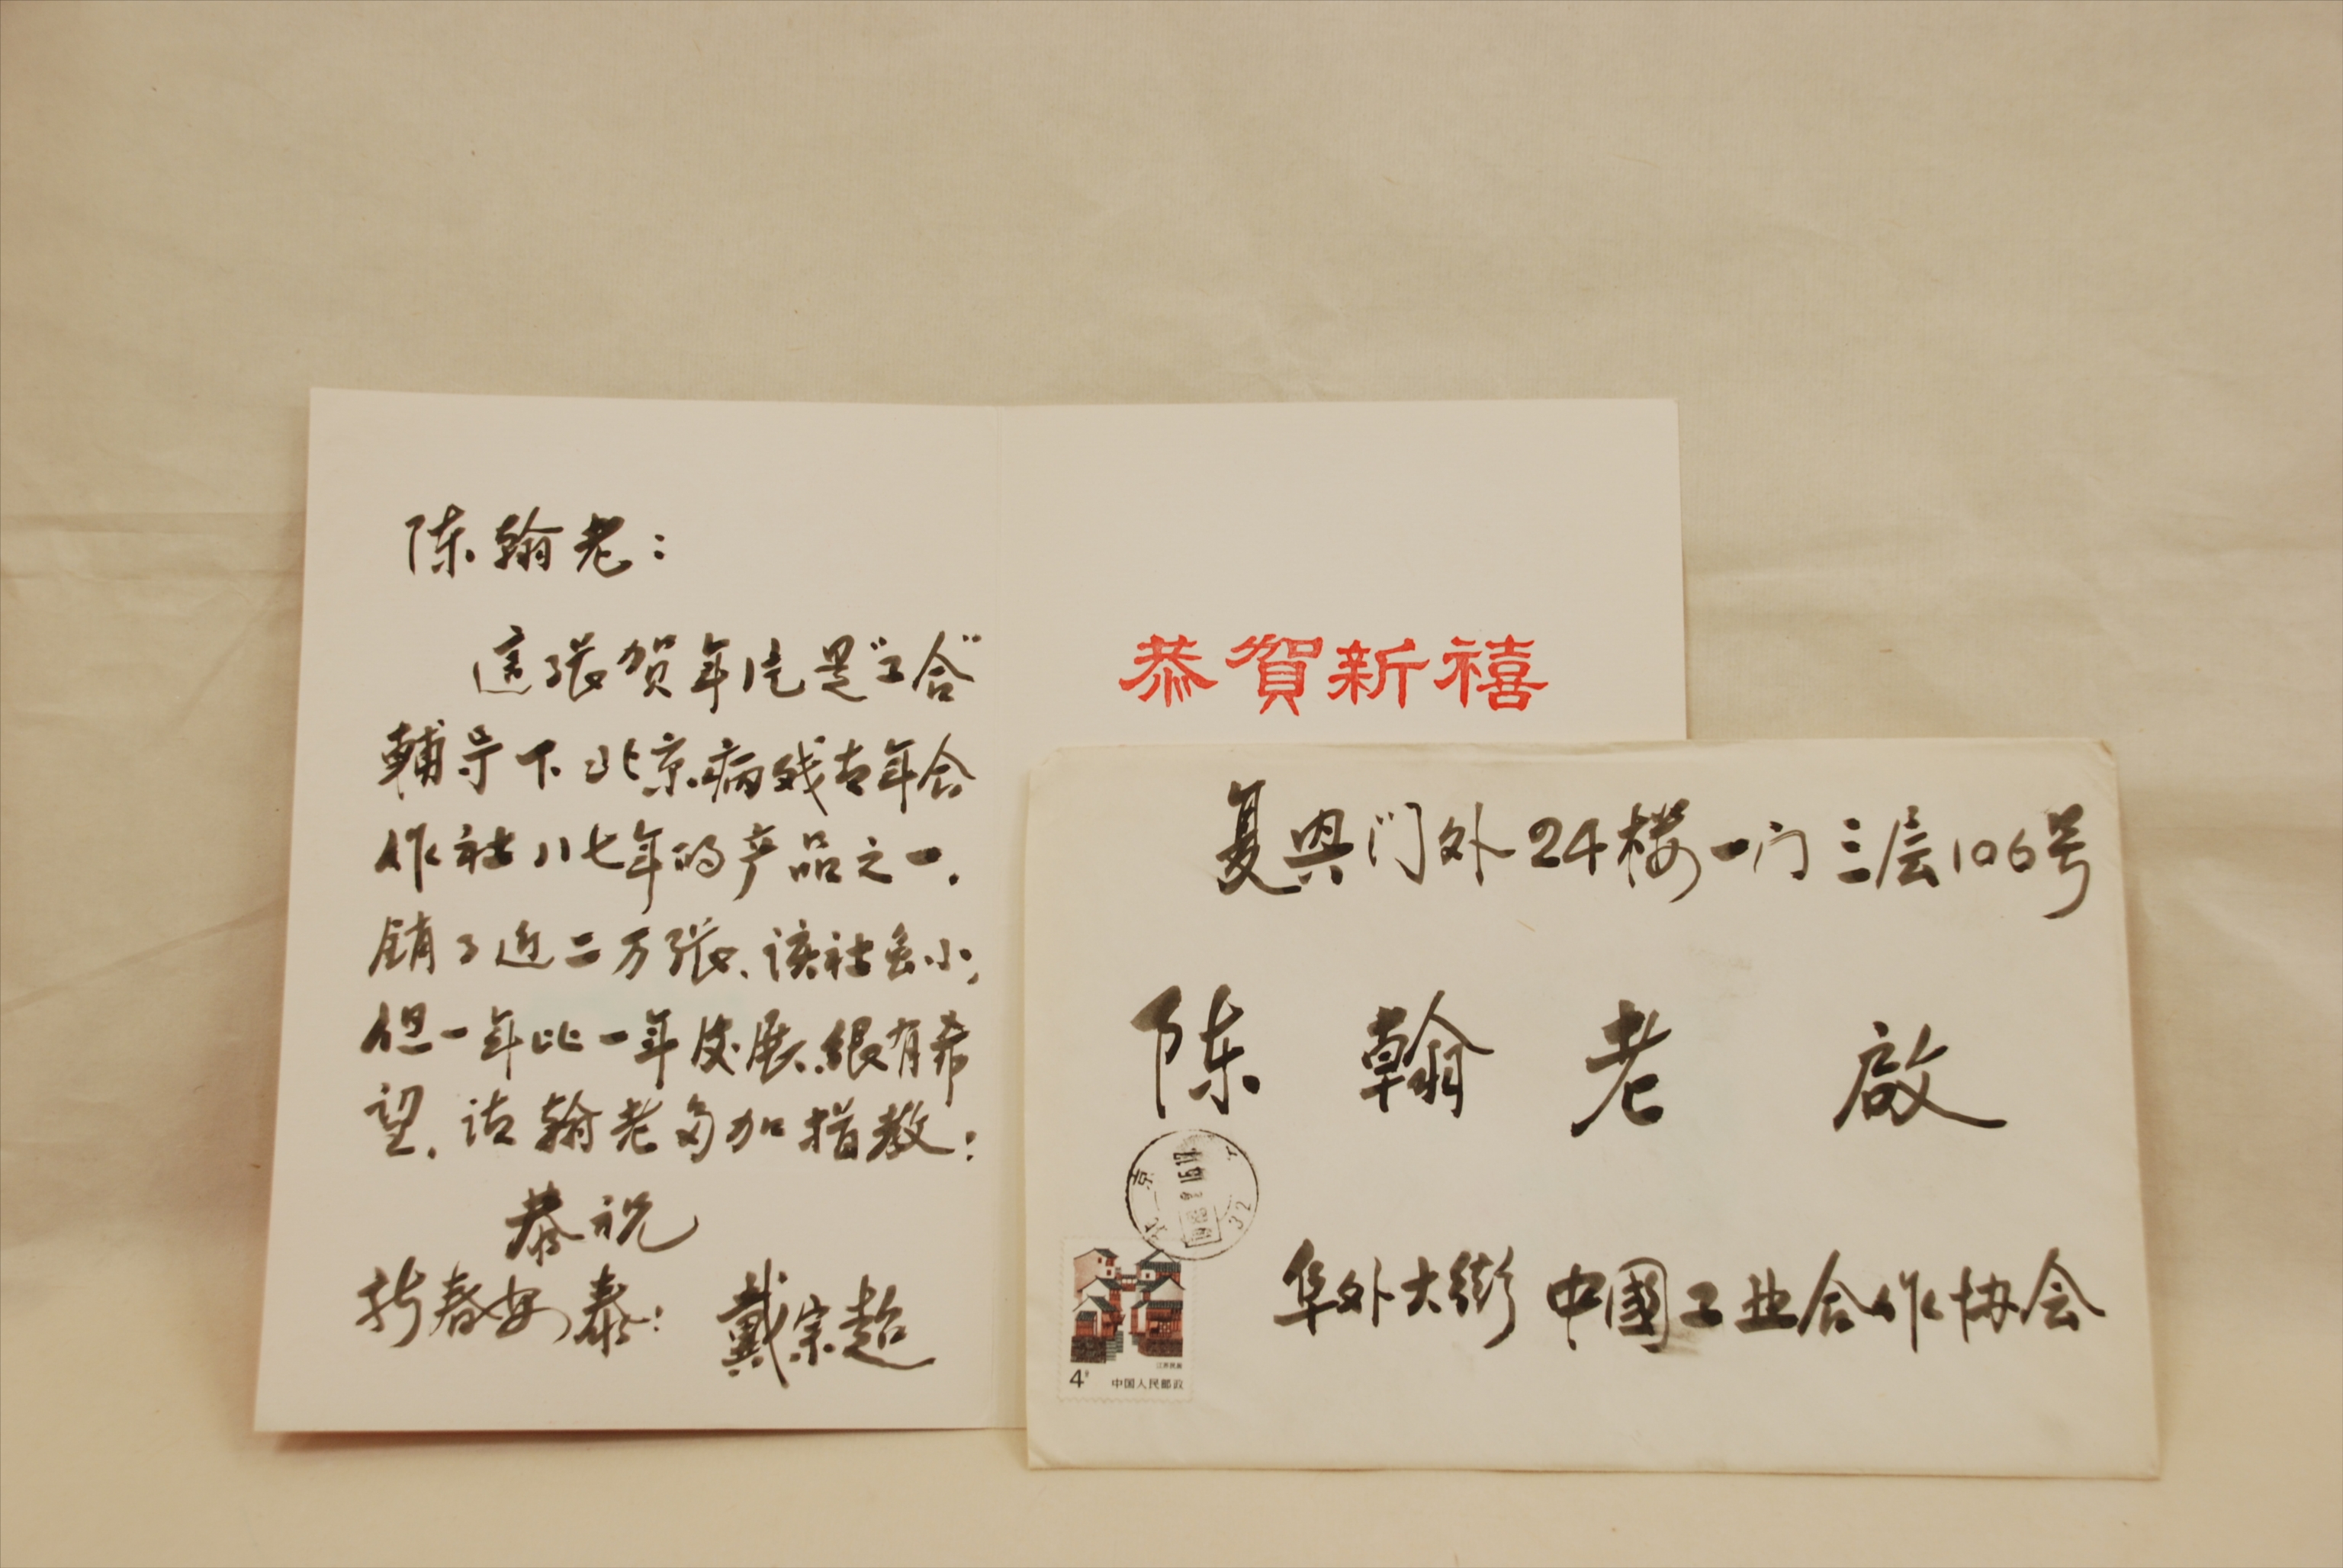 陈翰老：
这张贺年片是“工合”
輔导下北京病残青年合
作社八七年的产品之一.
销了近二万张、该社虽小,
但一年比一年发展.很有希
望.请翰老多加指教：
恭祝
新春安泰：
戴宗超
恭賀新禧
复兴门外24楼一门三层106号
陈翰老 啟
阜外大街 中國工业合作协会
北京
32
4分
江苏民居
中国人民邮政